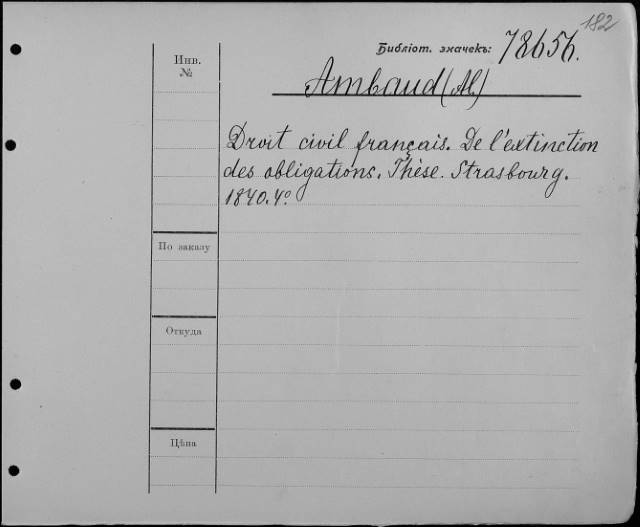 182
Библіот. значекъ: 78656.
Инв.
№
Ambaud (Al.)
Droit civil français. De l'extinction
des obligations. Thèse. Strasbourg.
1840. 4º
По заказу
Откуда
Цѣна